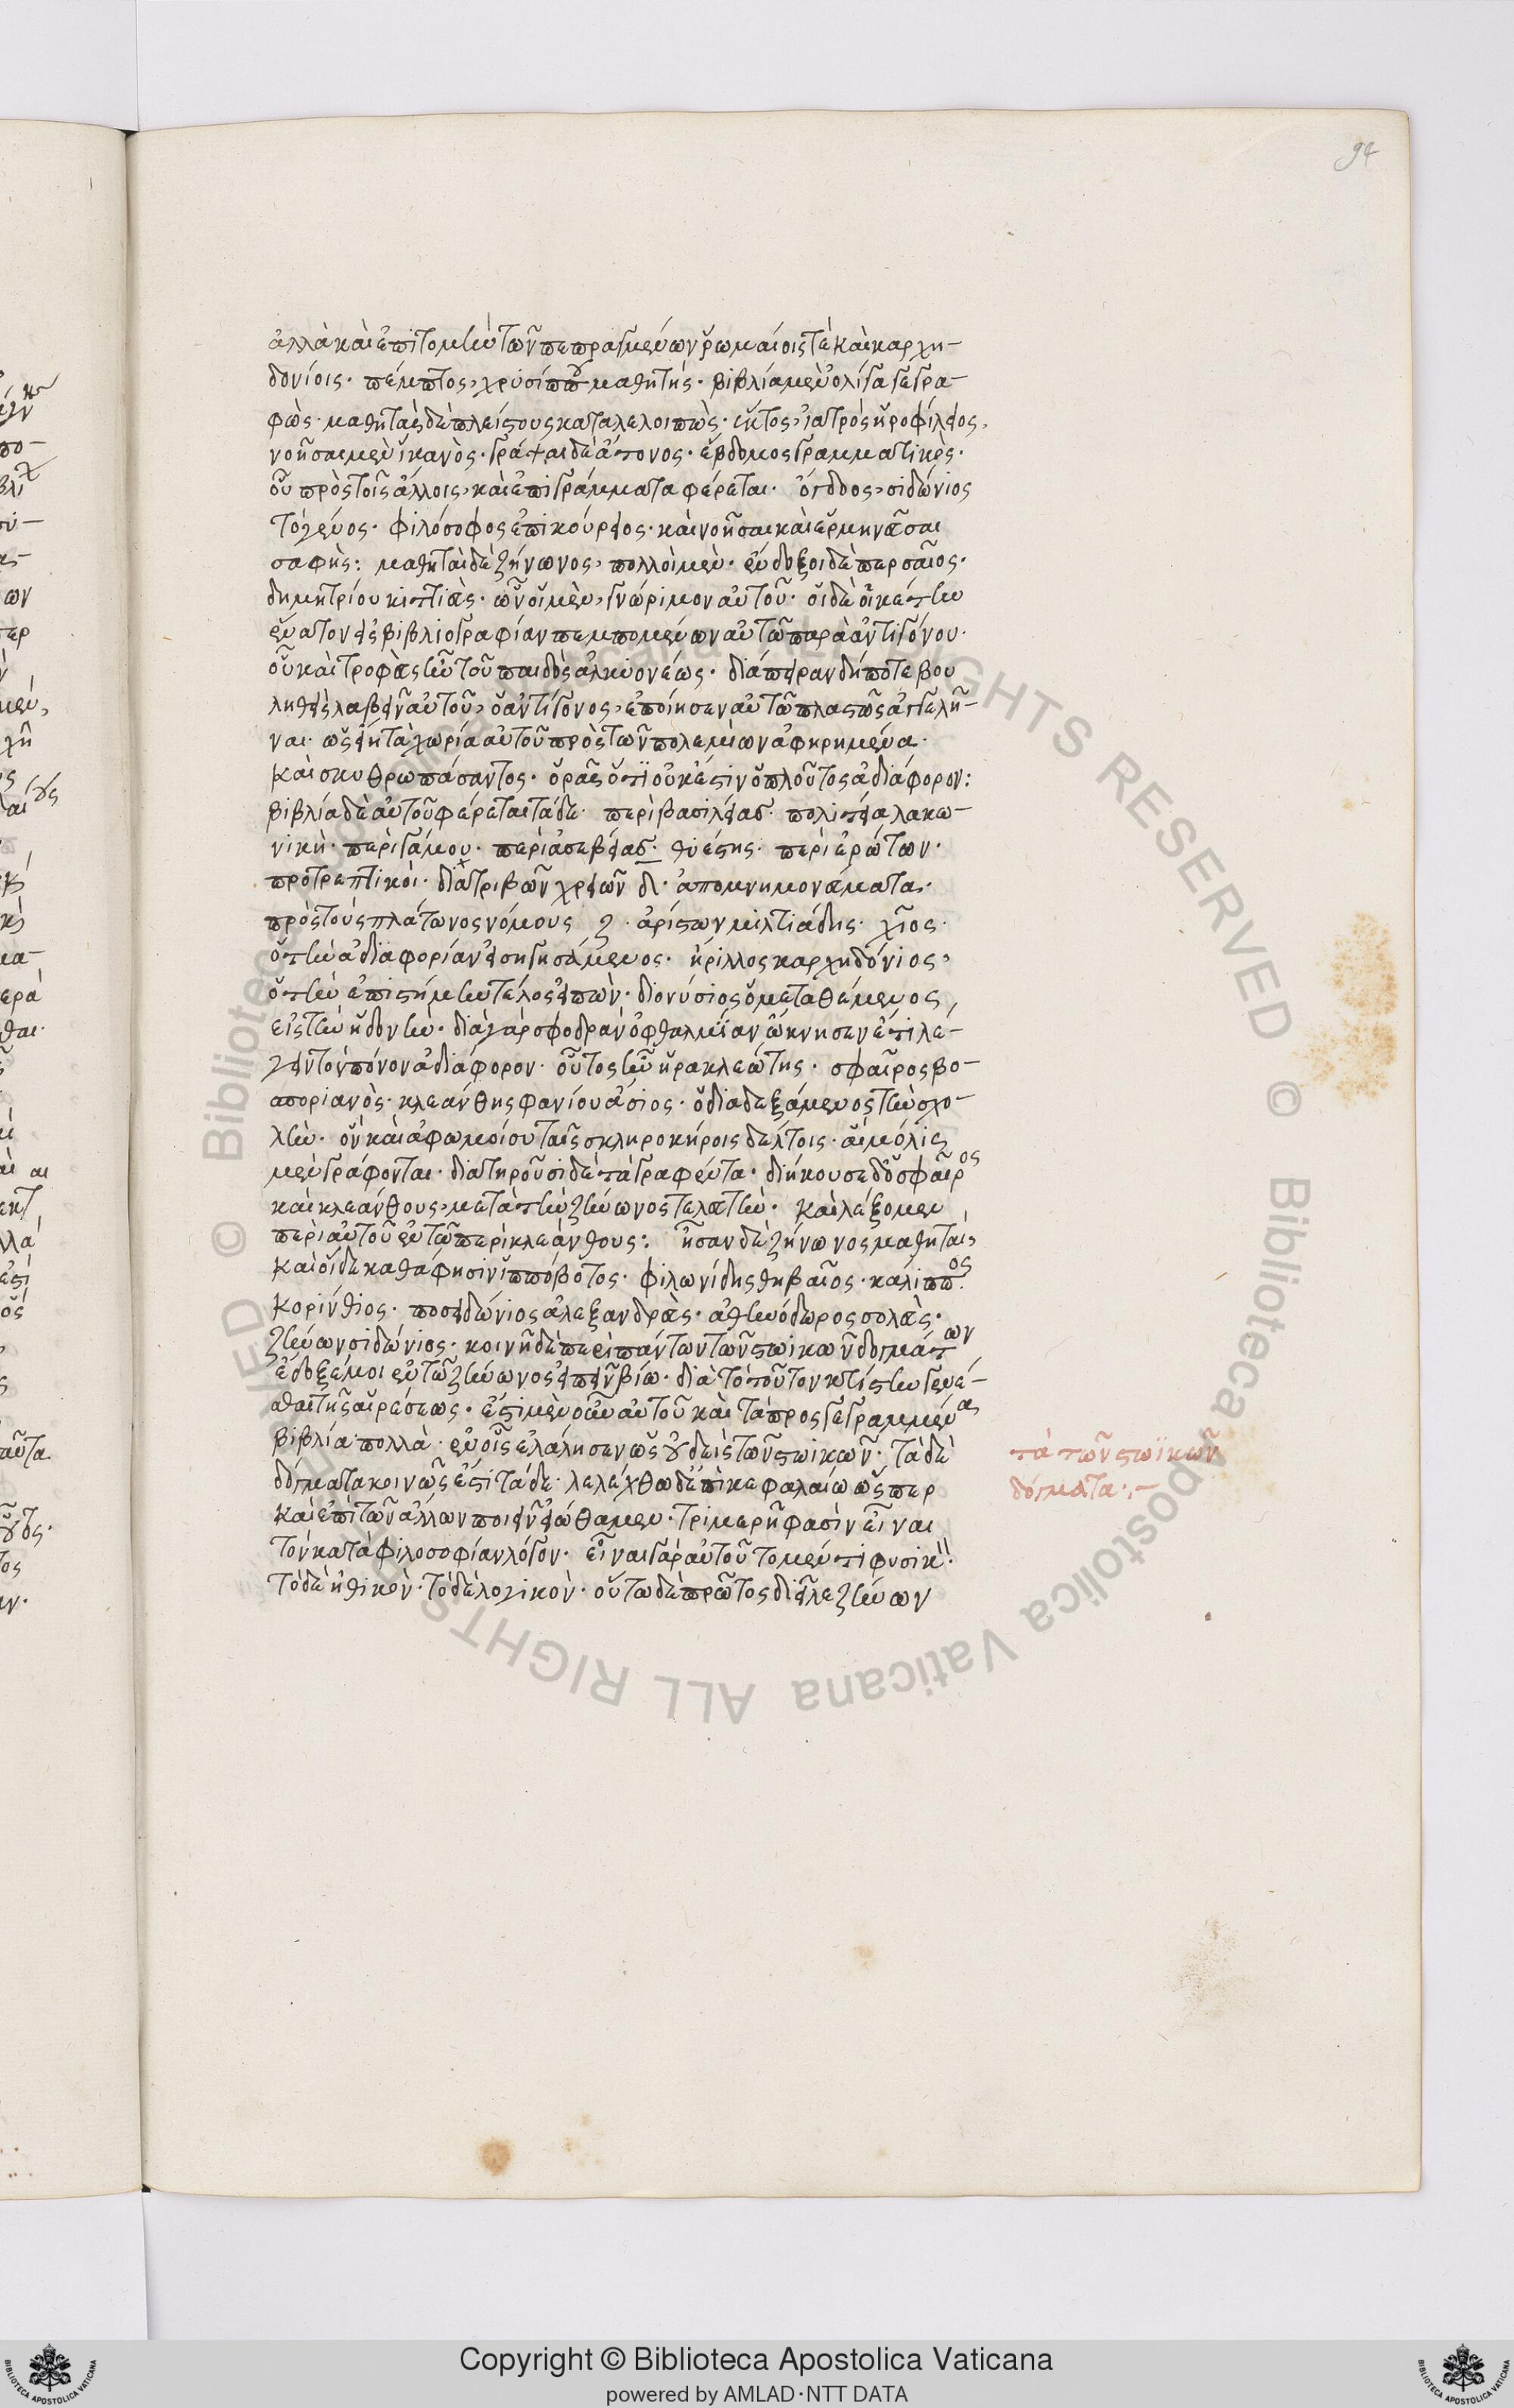 94
ἀλλὰ καὶ ἐπιτομὴν τῶν πεπραγμένων ῥωμαίοις τὲ καὶ καρχη–
δονίοις· πέμπτος, χρυσίππου μαθητής· βιβλία μὲν ὀλίγα γεγρα–
φὼς· μαθητὰς δὲ πλείστους καταλελοιπὼς· ἕκτος, ἰατρὸς ἡροφίλειος,
νοῆσαι μὲν ἱκανὸς· γράψαι δὲ ἄτονος· ἕβδομος γραμματικὸς·
οὗ πρὸς τοῖς ἄλλοις, καὶ ἐπιγράμματα φέρεται· ὄγδοος, σιδώνιος
τὸ γένος· φιλόσοφος ἐπικούρειος· καὶ νοῆσαι καὶ ἑρμηνεῦσαι
σαφὴς: μαθηταὶ δὲ ζήνωνος, πολλοὶ μὲν· ἔνδοξοι δὲ περσαῖος·
δημητρίου κιτιεὺς· ὧν οἱ μὲν, γνώριμον αὐτοῦ· οἱ δὲ οἰκέτην
ἕνα τῶν εἰς βιβλιογραφίαν πεμπομένων αὐτῶ παρὰ ἀντιγόνου·
οὗ καὶ τροφεὺς ἦν τοῦ παιδὸς ἀλκυονέως· διάπειραν δήποτε βου
ληθεὶς λαβεῖν αὐτοῦ, ὁ ἀντίγονος, ἐποίησεν αὐτῶ πλαστῶς ἀγγελῆ–
ναι· ὡς εἴη τὰ χωρία αὐτοῦ πρὸς τῶν πολεμίων ἀφηρημένα·
καὶ σκυθρωπάσαντος· ὁρᾶς ὅτι οὐκ ἔστιν ὁ πλοῦτος ἀδιάφορον:
βιβλία δὲ αὐτοῦ φέρεται τάδε· περὶ βασιλείας· πολιτεία λακω–
νικὴ· περὶ γάμου· περὶ ἀσεβείας· θυέστης· περὶ ἐρώτων·
προτρεπτικοὶ· διατριβῶν χρειῶν δ· ἀπομνημονεύματα·
πρὸς τοὺς πλάτωνος νόμους ζ· ἀρίστων μιλτιάδης· χῖος·
ὁ τὴν ἀδιαφορίαν εἰσηγησάμενος· ἥριλλος καρχηδόνιος,
ὁ τὴν ἐπιστήμην τέλος εἰπὼν· διονύσιος ὁ μεταθέμενος
εἰς τὴν ἡδονὴν· διὰ γὰρ σφοδρὰν ὀφθαλμίαν ὤκνησεν ἔτι λέ–
γειν τὸν πόνον ἀδιάφορον· οὗτος ἦν ἡρακλεώτης· σφαῖρος βο–
σποριανὸς· κλεάνθης φανίου ἄσιος· ὁ διαδεξάμενος τὴν σχο–
λὴν· ὃν καὶ ἀφωμοίου ταῖς σκληροκήροις δέλτοις· αἳ μόλις
μὲν γράφονται· διατηροῦσι δὲ τὰ γραφέντα· διήκουσε δὁ σφαῖρος
καὶ κλεάνθους, μετὰ τὴν ζήνωνος τελευτὴν· καὶ λέξομεν
περὶ αὐτοῦ ἐν τῶ περὶ κλεάνθους: ἦσαν δὲ ζήνωνος μαθηταὶ,
καὶ οἵδε καθά φησιν ἱππόβοτος· φιλωνίδης θηβαῖος· κάλιππος
κορίνθιος· ποσειδώνιος ἀλεξανδρεὺς· ἀθηνόδωρος σολεὺς·
ζήνων σιδώνιος· κοινῆ δὲ περὶ πάντων τῶν στωικῶν δογμάτων
ἔδοξέ μοι ἐν τῶ ζήνωνος εἰπεῖν βίω· διὰ τὸ τοῦτον κτίστην γενέ–
σθαι τῆς αἱρέσεως· ἔστι μὲν οὖν αὐτοῦ καὶ τὰ προσγεγραμμένα
βιβλία πολλὰ· ἐν οἷς ἐλάλησεν ὡς οὐδεὶς τῶν στωικῶν· τὰ δὲ
δόγματα κοινῶς ἐστὶ τάδε· λελέχθω δ' ἐπὶ κεφαλαίω ὥσπερ
καὶ ἐπὶ τῶν ἄλλων ποιεῖν εἰώθαμεν· τριμερῆ φασὶν εἶναι
τὸν κατὰ φιλοσοφίαν λόγον· εἶναι γὰρ αὐτοῦ τὸ μέν τι φυσικὸν·
τὸ δὲ ἠθικὸν· τὸ δὲ λογικὸν· οὕτω δὲ πρῶτος διεῖλε ζήνων
τὰ τῶν στωϊκῶν
δόγματα·–
Copyright © Biblioteca Apostolica Vaticana
powered by AMLAD·NTT DATA